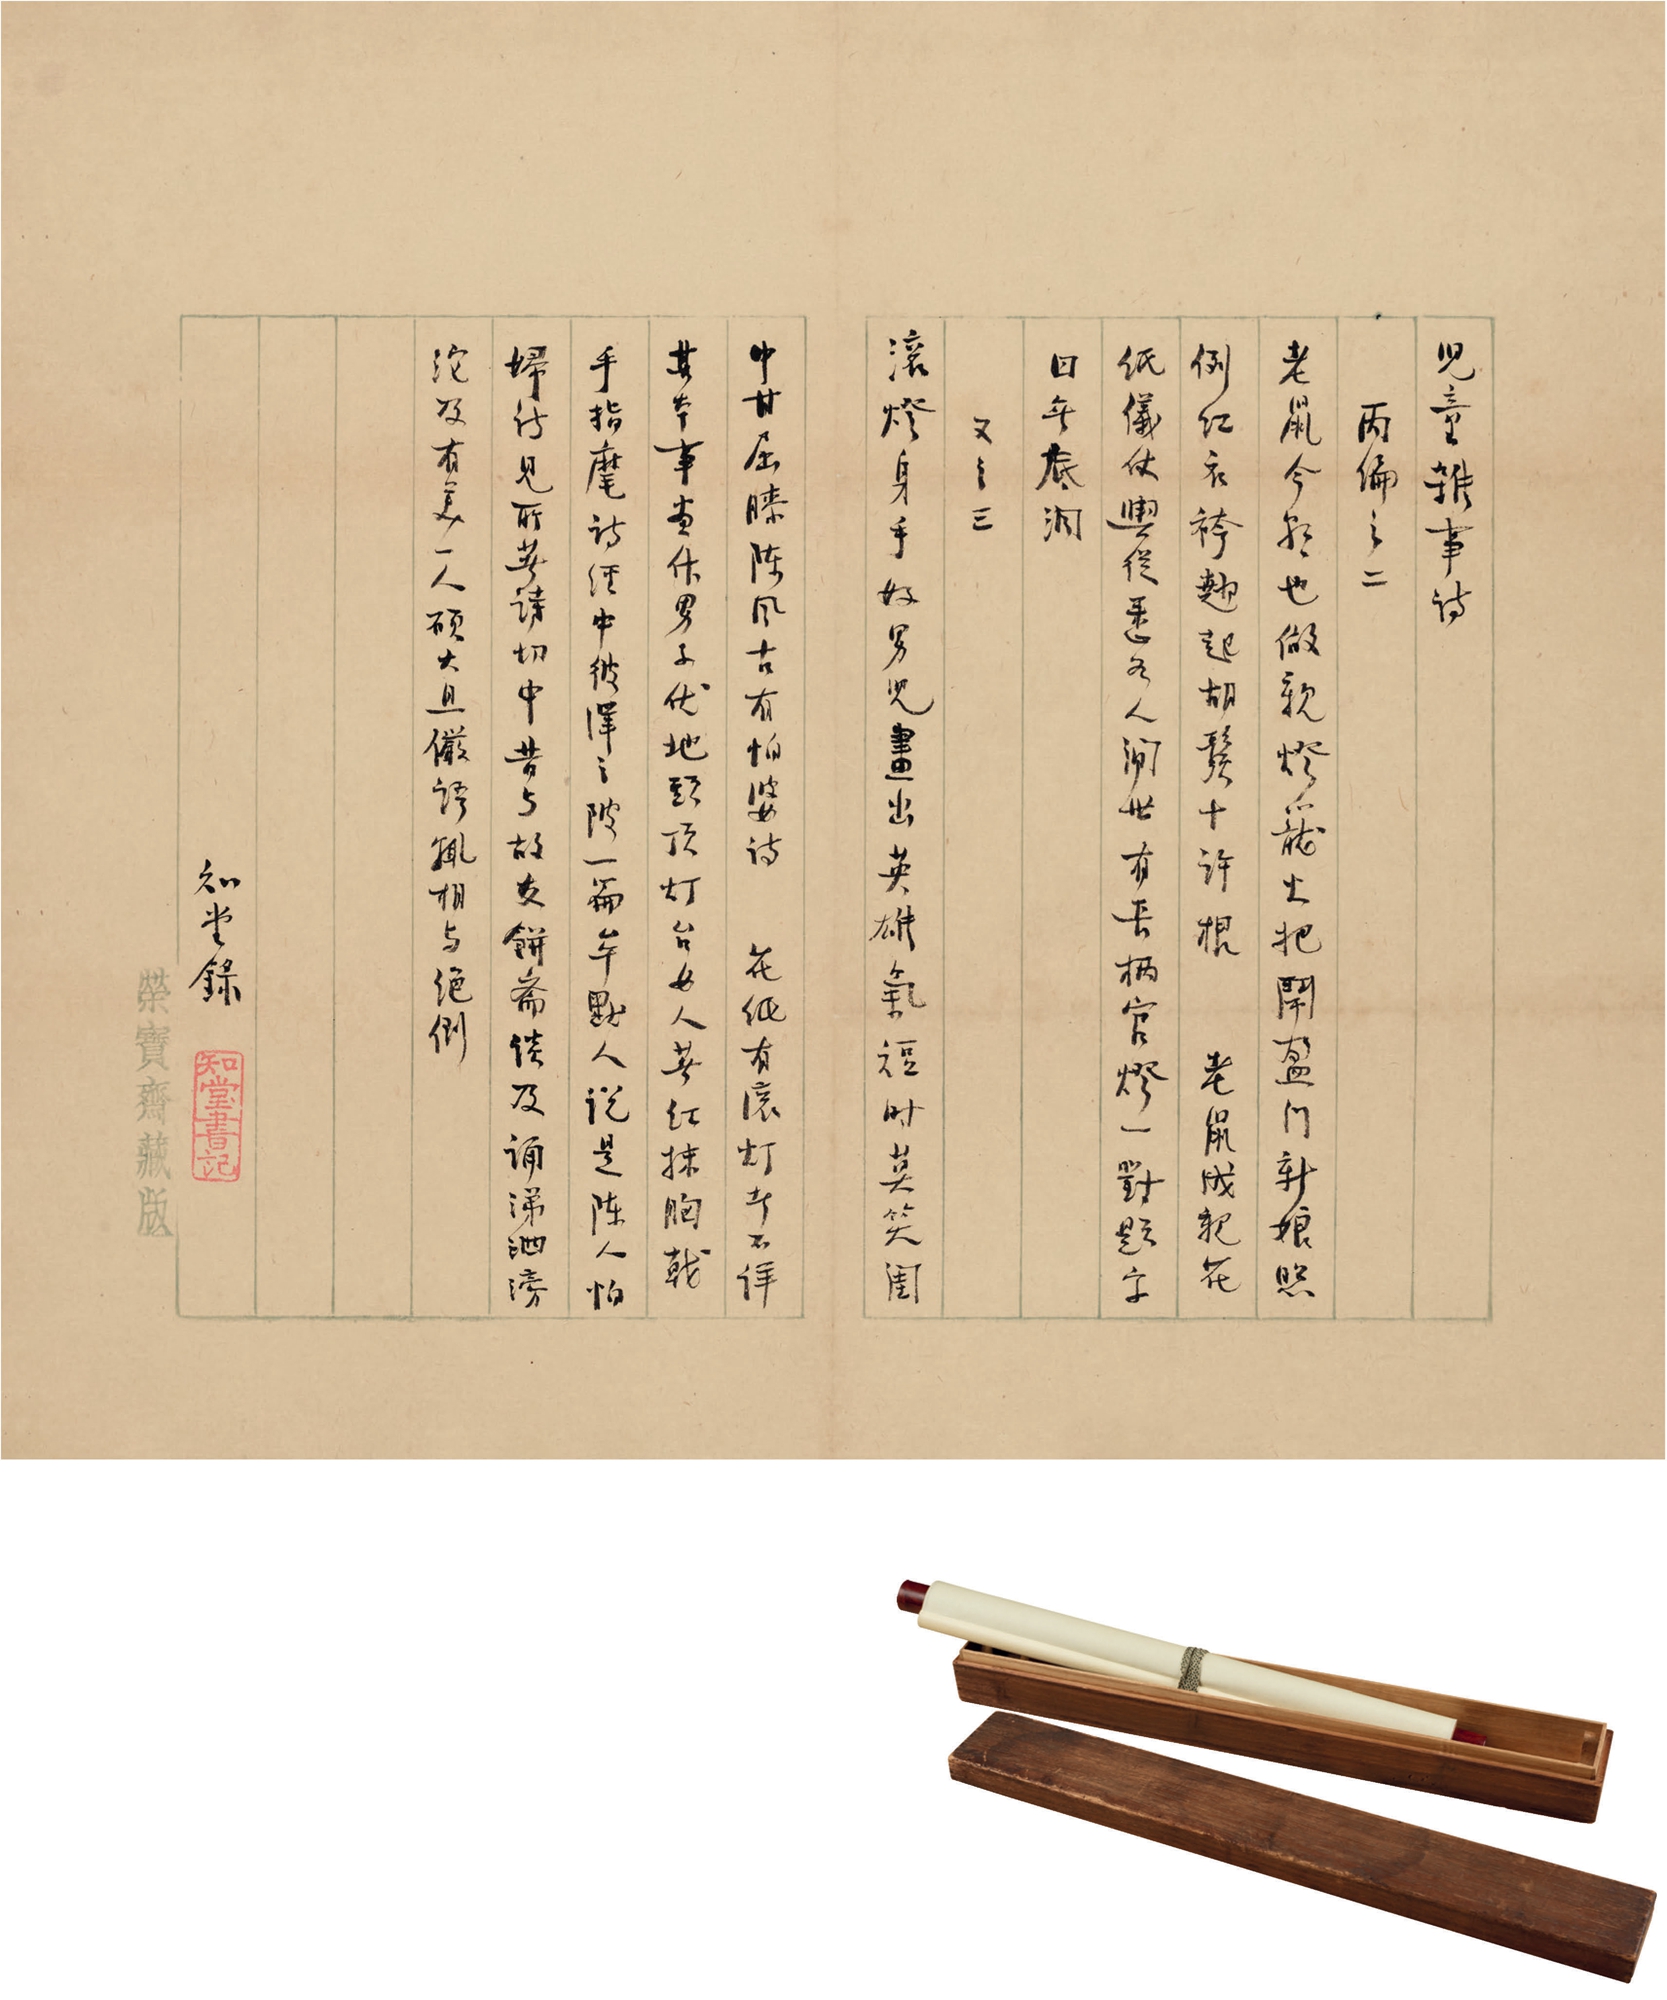 兒童雜事詩
丙編之二
老鼠今朝也做親燈籠火把鬧盈門新娘照
例紅衣袴翹起胡鬚十許根 老鼠成親花
紙儀仗輿從悉如人間世有長柄官燈一對題字
曰無底洞
又之三
滾燈身手好男兒畫出英雄氣短時莫笑閨
中甘屈膝陳風古有怕婆詩 花紙有滾灯者不詳
其本事畫作男子伏地頭頂灯台女人著紅抹胸戟
手指麾詩經中彼澤之陂一篇年默人說是陳人怕
婦詩見所著詩切中昔与故友餅齋談及誦涕泗滂
沱及有美一人碩大且儼語輒相与絕倒
知堂錄
知堂書記
榮寶齋藏版